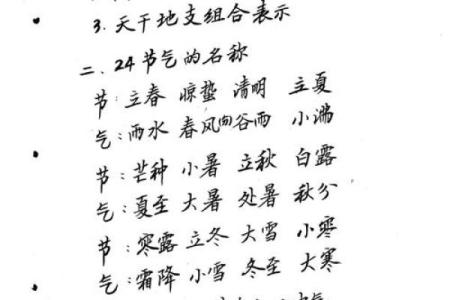 3. 天干地支组合表示
二、24节气的名称
节：立春 惊蛰 清明 立夏
气：雨水 春风向谷雨 小沸
节：芒种 小暑 立秋 白露
气：夏至 大暑 处暑 秋分
节：寒露 立冬 大雪 小寒
气：霜降 小雪 冬至 大寒